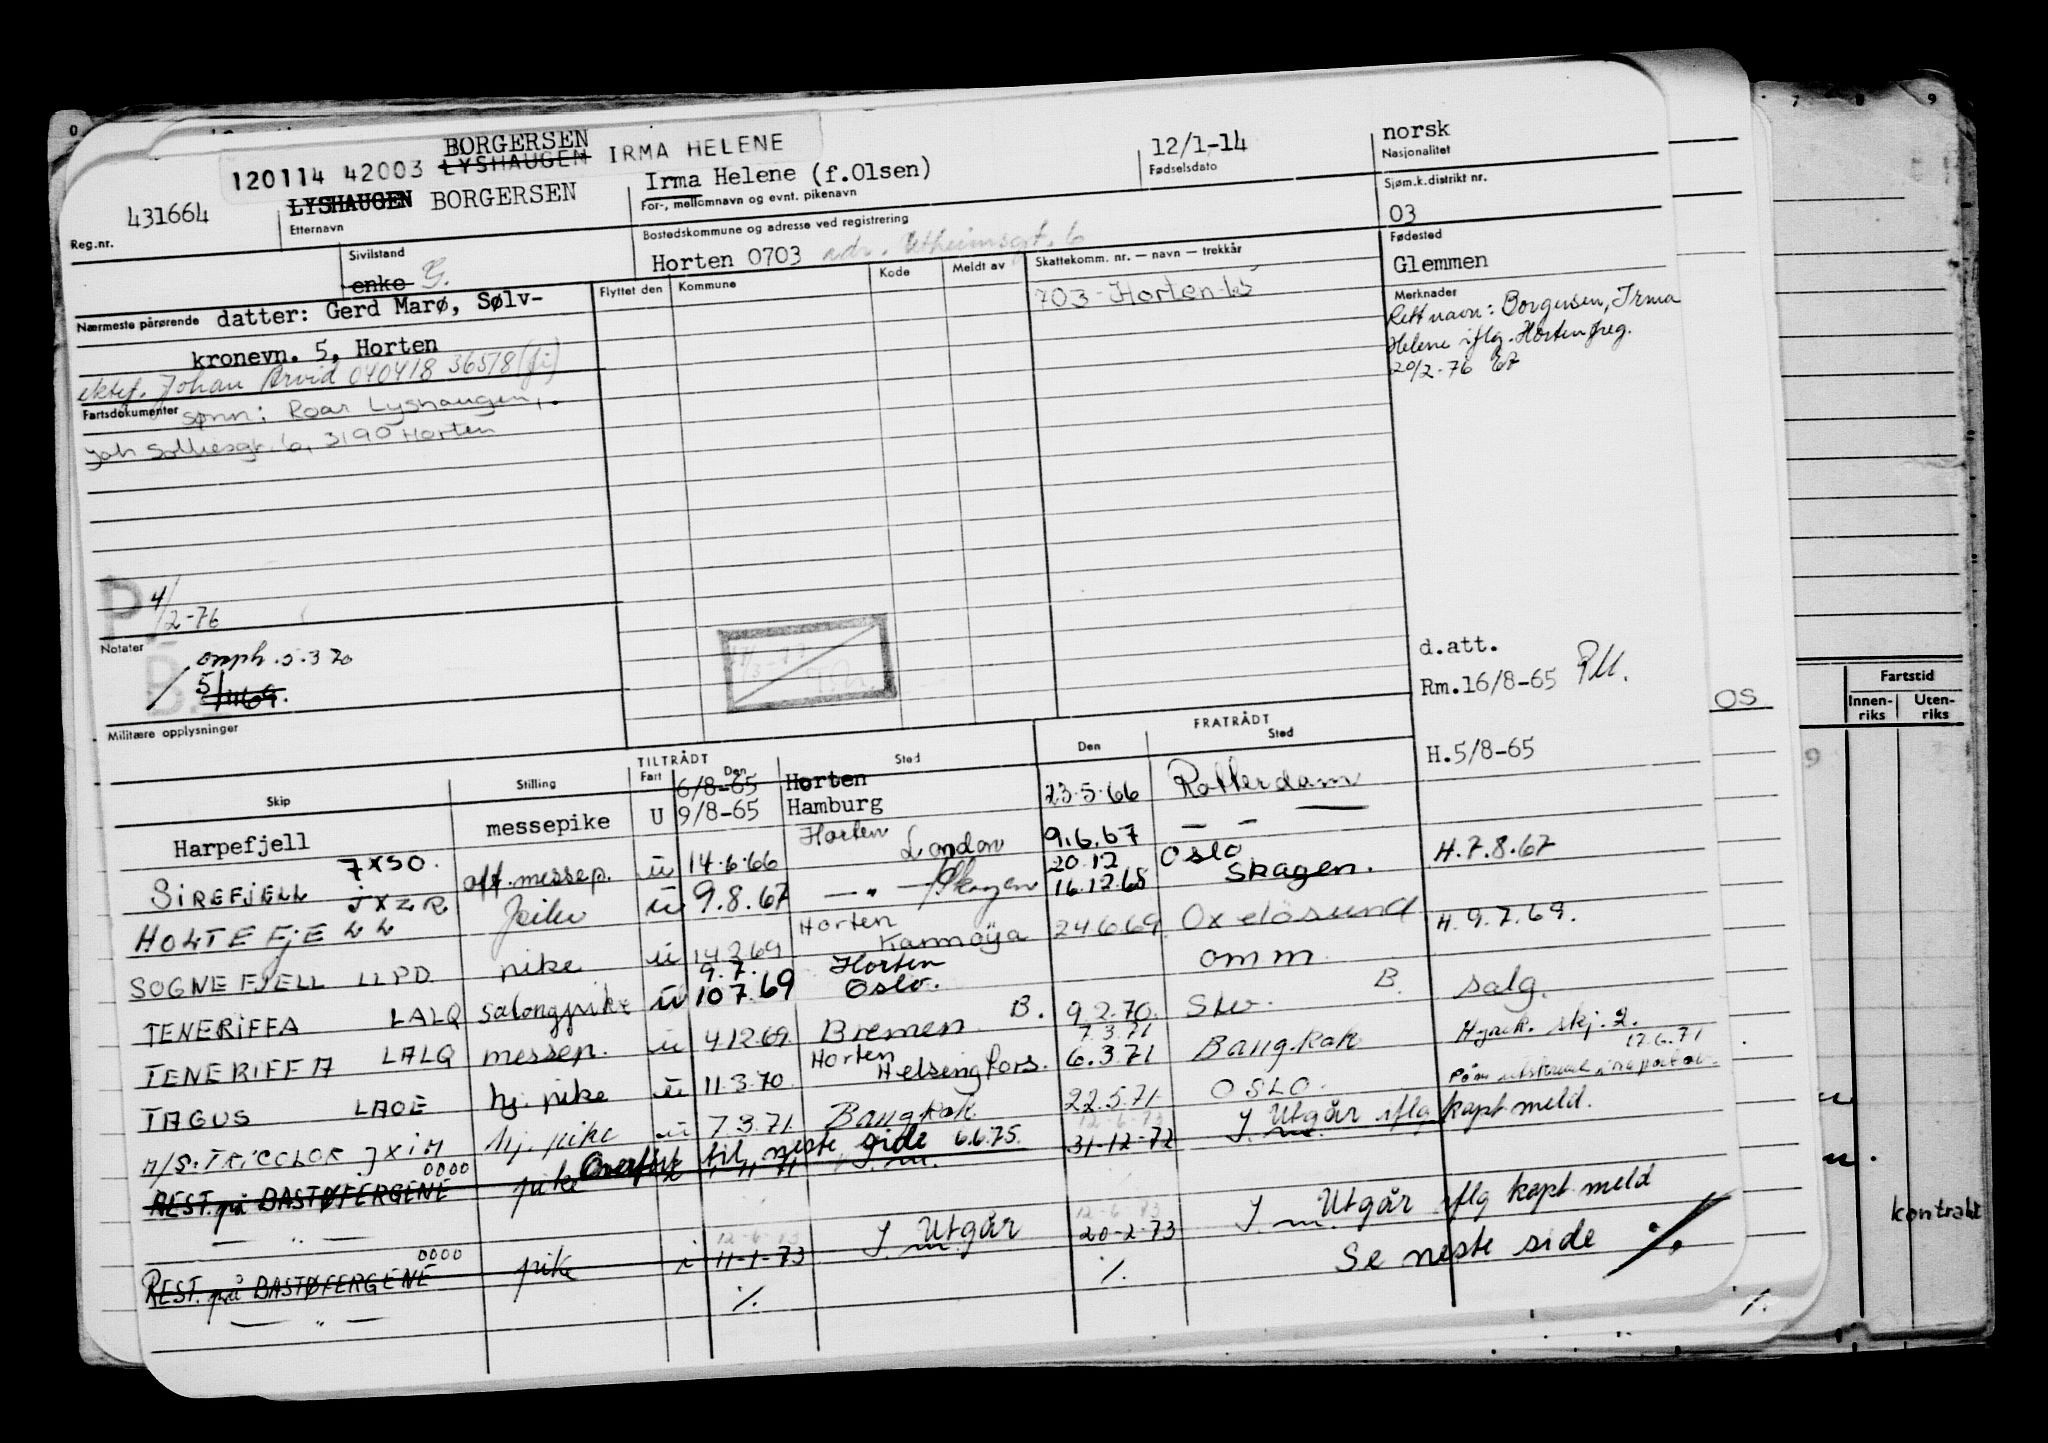 120114 42003 BORGERSEN LYSHAUGEN IRMA HELENE
431664
Reg.nr.
LYSHAUGEN BORGERSEN
Etternavn
Irma Helene (f.Olsen)
For-, mellomnavn og evnt. pikenavn
12/1-14
Fødselsdato
norsk
Nasjonalitet
Sivilstand
enke G.
Bostedskommune og adresse ved registrering
Horten 0703 adr.
Sjøm.k.distrikt nr.
03
Nærmeste pårørende datter: Gerd Marø, Sølv-
kronevn. 5, Horten
ektef. Johan Arvid 040418 36518
Fartsdokumenter sønn: Roar Lyshaugen,
3190 Horten
Flyttet den
Kommune
Kode
Meldt av
Skattekomm. nr. — navn — trekkår
703 - Horten
Fødested
Glemmen
Merknader
Rett navn: Borgersen, Irma
Helene iflg. Horten freg.
20/2-76
P. 4/2-76
Notater
omph. 5.3 70
B.
Militære opplysninger
d.att.
Rm.16/8-65
H.5/8-65
TILTRÅDT
FRATRÅDT
Skip
Stilling
Fart
Den
Sted
Den
Sted
Harpefjell messepike U 6/8-65 Horten 9/8-65 Hamburg 23.5.66 Rotterdam
SIREFJELL JXSO. aff. messep. u 14.6.66 Horten London 9.6.67 — " —
HOLTEFJELL JXZR u 9.8.67 — " — Skagen 20.12 16.12.68 Oslo Skagen. H.7.8.67
SOGNEFJELL LLPD pike u 14.2.69 Horten Karmøya 24.6.69 Oxelösund H.9.7.69.
TENERIFFA LALQ salongpike u 9.7. 10.7.69 Horten Oslo. omm
TENERIFFA LALQ messep. u 4.12.69 Bremen B. 9.2.70. Slv. B. salg.
TAGUS LAOE hj. pike u 11.3.70 Horten Helsingfors. 7.3.71 6.3.71 Bangkok skj. 2.
17.6.71
M/S. TRICOLOR JXIM hj. pike u 7.3.71 Bangkok 22.5.71 OSLO.
Overført til neste side 6.6.75.
REST. på BASTØFERGENE 0000 pike 31-12-72 I. m. Utgår iflg kapt meld.
— " —
REST. på BASTØFERGENE 0000 pike i 12-6-73 11-1-73 I. m. Utgår 12-6-73 20-2-73 I. m. Utgår iflg kapt meld
— " — ./. ./. Se neste side ./.
OS
Fartstid
Innen-
riks
Uten-
riks
kontrakt